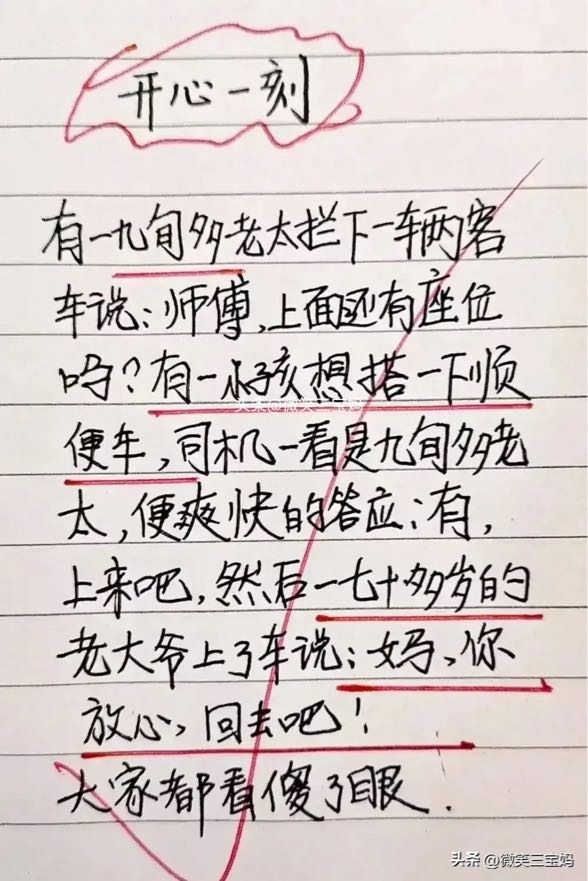 开心一刻
有一九旬多老太拦下一车两客
车说：师傅，上面还有座位
吗？有一小孩想搭一下顺
便车，司机一看是九旬多老
太，便爽快的答应：有，
上来吧，然后一七十多岁的
老大爷上了车说：妈、你
放心，回去吧！
大家都看傻了眼．
头条@微笑三宝妈
头条 @微笑三宝妈